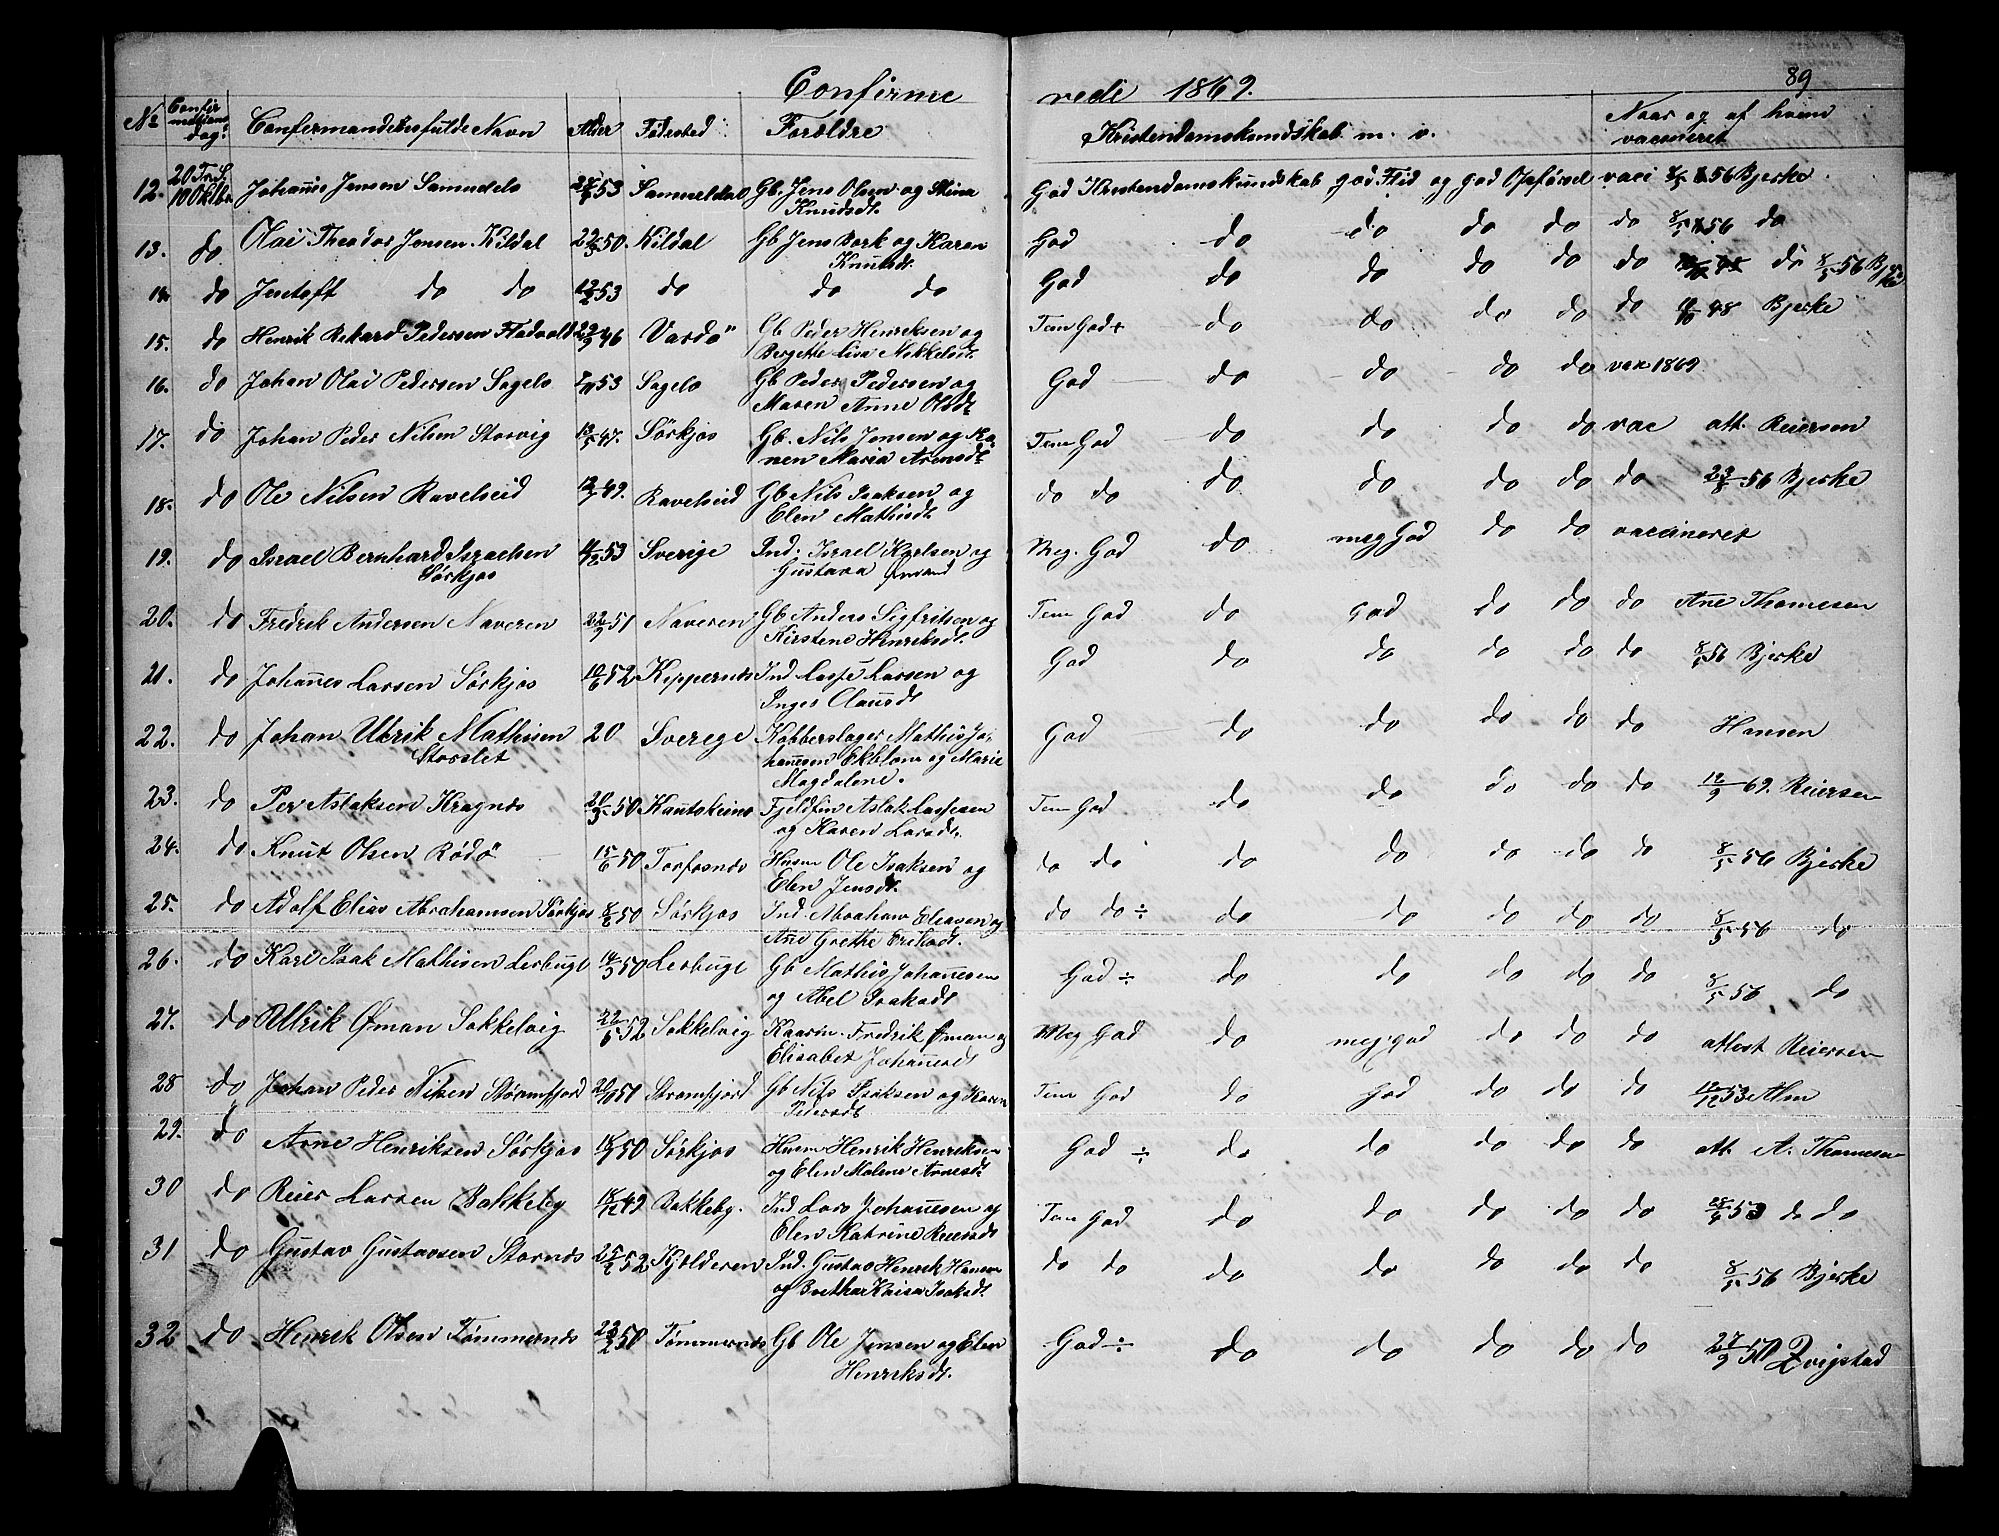 Confirme
rede 1869.
89
No Confirmations dag Confermandens fulde Navn Alder Födested Forældre Kristendomskundskab m. v. Naar og af hvem vaccineret
12. 20 Tr. S. 10 Oktbr Johannes Jensen Samuels 53 Sammeldal Gb. Jens Olsen og Stina God Kristendomskundskab god Flid og god Opførsel vaci 8/5 56 Bjerke
Knudsdt.
13. do Olai Theodor Jensen Kildal 50. Kildal Gb Jens Bork og Karen God do do do do do 8/5 56 do
Knutsdt.
14. do Jentoft do do 12/2 53 do do do God do do do do do do 8/5 56 Bjerke
15. do Henrik Rikard Pedersen Fladvold 46 Vardö Gb Peder Henriksen og Tem God+ do do do do do 48 Bjerke
Bergethe Lisa Mikkelsdt.
16. do Johan Olai Pedersen Sagelo 53 Sagelo Gb Peder Pedersen og God do do do do vac 1869
Maren Anne Olsdt
17. do Johan Peder Nilsen Storvig 13/5 47. Sörkjos Gb. Nils Jensen og Ka- Tem God do do do do vac att. Reiersen
nen Maria Arnesdt.
18. do Ole Nilsen Ravelseid 12/7 49. Ravelseid Gb Nils Isaksen og do do do do do do do 23/8 56 Bjerke
Elen Mathisdt.
19. do Israel Bernhard Israelsen 53 Sverige Ind. Israel Karlsen og Meg. God do meg God do do vaccineret
Sörkjos Gustava
20. do Fredrik Andersen Maveren 22/9 51 Naveren Gb Anders Sigfritsen og Tem God do god do do do Ane Thomesen
Kirstene Henriksdt.
21. do Johannes Larsen Sörkjos 10/6 52 Kippernes Ind Lasse Larsen og God do do do do do 8/5 56 Bjerke
Inger Clausdt
22. do Johan Ulrik Mathisen 20 Sverige Kobberslager Mathis Jo- God do do do do do Hansen
Storslet hannesen Ekblom og Marie
Magdalene.
23. do Per Aslaksen Kragnæs 50 Kautokeino Fjeldfin Aslak Lassesen Tem God do do do do do 12/9 69. Reiersen
og Karen Larsdt.
24. do Knut Olsen Rödö 15/6 50 Torfosnes Husm Ole Isaksen og do do do do do do do 8/5 56 Bjerke
Elen Jensdt.
25. do Adolf Elias Abrahamsen Sörkjos 50 Sörkjos Ind Abraham Eliasen og do do ÷ do do do do do 8/5 56 do
Ane Grethe Eriksdt.
26. do Karl Isak Mathisen Lerbugt 14/3 50 Lerbugt Gb Mathis Johannesen God ÷ do do do do do 8/5 56 do
og Abel Isaksdt
27. do Ulrik Øman Sokkelvig 22/6 52 Sokkelvig Fredrik Øman og Meg God do meg god do do do attest Reiersen
Elisabet Johannesdt
28 do Johan Peder Nilsen Strømfjord 51 Stromfjord Gb Nils Isaksen og Karen Tem God do god do do do 12/12 53 Alm
Pedersdt
29. do Arne Henriksen Sörkjos 50 Sörkjos Husm Henrik Henriksen God ÷ do do do do do att. A. Thomesen
og Elen Malene Arnesdt.
30 do Reier Larsen Bakkeby 18/12 49 Bakkeby. Ind Lars Johannesen og Tem God do do do do do 53 do do
Elen Katrine Reiersdt
31 do Gustav Gustavsen Stornes 52 Kjolderen Ind. Gustav Henrik Hansen do do do do do do do 8/5 56 Bjerke
og Bretha Kaisa Isaksdt.
32 do Henrik Olsen Tömmernes 50 Tömmernes Gb Ole Jensen og Elen God ÷ do do do do do 27/9 50 Qvigstad
Henriksdt.